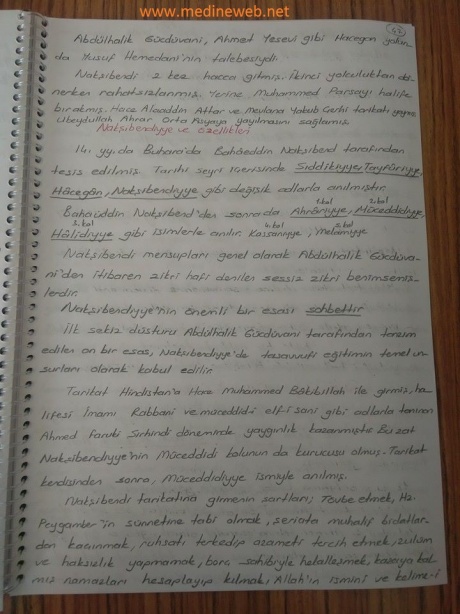 www.medineweb.net
Abdülhalik Gücdüvani, Ahmet Yesevi gibi Hacegan yolun-
da Yusuf Hemedani'nin talebesiydi.
Nakşibendi 2 kez hacca gitmiş. İkinci yolculuktan dö-
nerken rahatsızlanmış. Yerine Muhammed Parsayı halife
bırakmış. Hace Alaaddin Attar ve Mevlana Yakub Çerhi tarikatı yaymış
Ubeydullah Ahrar Orta Asyaya yayılmasını sağlamış
Nakşibendiyye ve özellikleri
14. yy. da Buhara'da Bahâeddin Nakşibend tarafından
tesis edilmiş. Tarihi seyri içerisinde Sıddîkiyye, Tayfûriyye,
Hâcegân, Nakşibendiyye gibi değişik adlarla anılmıştır.
1. kol 2. kol
Bahaüddin Nakşibend'den sonra da Ahrâriyye, Müceddidiyye,
3. kol 4. kol 5. kol
Hâlidiyye gibi isimlerle anılır. Kassaniyye, Melamiyye
Nakşibendi mensupları genel olarak Abdülhalik Gücdüva-
ni'den itibaren zikri hafi denilen sessiz zikri benimsemiş-
lerdir.
Nakşibendiyye'nin önemli bir esası sohbettir
İlk sekiz düsturu Abdülhalik Gücdüvani tarafından tanzim
edilen on bir esas, Nakşibendiyye'de tasavvufi eğitimin temel un-
surları olarak kabul edilir.
Tarikat Hindistan'a Hace Muhammed Bâkibillah ile girmiş, ha-
lifesi İmamı Rabbani ve müceddid-i elf-i sani gibi adlarla tanınan
Ahmed Faruki Sirhindi döneminde yaygınlık kazanmıştır. Bu zat
Nakşibendiyye'nin Müceddidi kolunun da kurucusu olmuş. Tarikat
kendisinden sonra, Müceddidiyye ismiyle anılmış.
Nakşibendi tarikatına girmenin şartları; Tevbe etmek, Hz.
Peygamber'in sünnetine tabi olmak, şeriata muhalif bidatlar-
dan kaçınmak, ruhsatı terkedip azimeti tercih etmek, zulüm
ve haksızlık yapmamak, borç sahibiyle helalleşmek, kazaya kal-
mış namazları hesaplayıp kılmak, Allah'ın ismini ve kelime-i